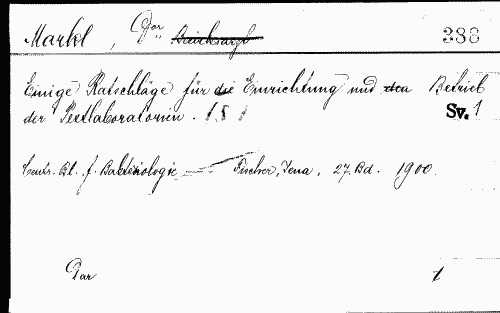 Markl, Dor Bezirksarzt 388
Einige Ratschläge für die Einrichtung und den Betrieb
der Pestlaboratorien. Sv. 1
Centr. Bl. f. Bakteriologie — Fischer, Jena, 27. Bd. 1900.
Dar